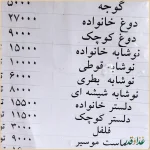 گوجه ۵۰۰۰
دوغ خانواده ۲۷۰۰۰
دوغ کوچک ۹۰۰۰
نوشابه خانواده ۱۵۰۰۰
نوشابه قوطی ۱۰۰۰۰
نوشابه بطری ۸۰۰۰
نوشابه شیشه ای ۶۰۰۰
دلستر خانواده ۱۵۵۰۰
دلستر کوچک ۱۱۵۰۰
فلفل
ماست موسیر